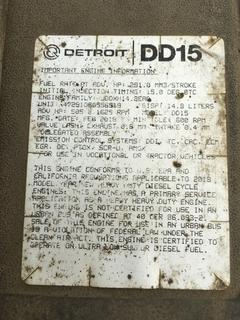 DETROIT DD15
IMPORTANT ENGINE INFORMATION:
FUEL RATE AT ADV. HP: 291.0 MM3/STROKE
INITIAL INJECTION TIMING: 15.0 DEG BTC
ENGINE FAMILY:
UNIT: 14.8 LITERS
ADV. HP: 505 @ 1625 RPM MODEL: DD15
MFG. DATE: FEB 2015 MIN IDLE: 600 RPM
VALVE LASH: EXHAUST 0.6 MM INTAKE 0.4 MM
DELEGATED ASSEMBLY
EMISSION CONTROL SYSTEMS: DDI, TC, CAC, ECM
EGR, OC, PTOX, SCR-U,
FOR USE IN VOCATIONAL OR TRACTOR VEHICLES
THIS ENGINE CONFORMS TO U.S. EPA AND
CALIFORNIA REGULATIONS APPLICABLE TO 2015
MODEL YEAR NEW HEAVY DUTY DIESEL CYCLE
ENGINES. THIS ENGINE HAS A PRIMARY SERVICE
APPLICATION AS A HEAVY HEAVY DUTY ENGINE.
THIS ENGINE IS NOT CERTIFIED FOR USE IN AN
URBAN BUS AS DEFINED AT 40 CFR 86.093-2.
SALE OF THIS ENGINE FOR USE IN AN URBAN BUS
IS A VIOLATION OF FEDERAL LAW UNDER THE
CLEAN AIR ACT. THIS ENGINE IS CERTIFIED TO
OPERATE ON ULTRA LOW SULFUR DIESEL FUEL.